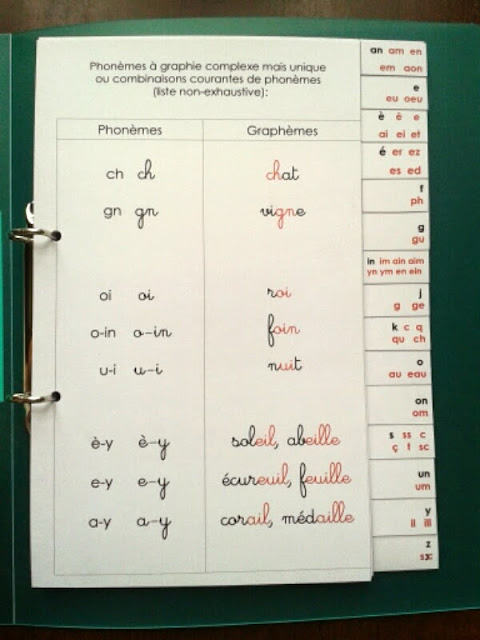 Phonèmes à graphie complexe mais unique
ou combinaisons courantes de phonèmes
(liste non-exhaustive):
Phonèmes Graphèmes
ch ch chat
gn gn vigne
oi oi roi
o-in o-in foin
u-i u-i nuit
è-y è-y soleil, abeille
e-y e-y écureuil, feuille
a-y a-y corail, médaille
an am en
em aon
e
eu oeu
è ê e
ai ei et
é er ez
es ed
f
ph
g
gu
in im ain aim
yn ym en ein
j
g ge
k c q
qu ch
o
au eau
on
om
s ss c
ç t sc
un
um
y
il ill
z